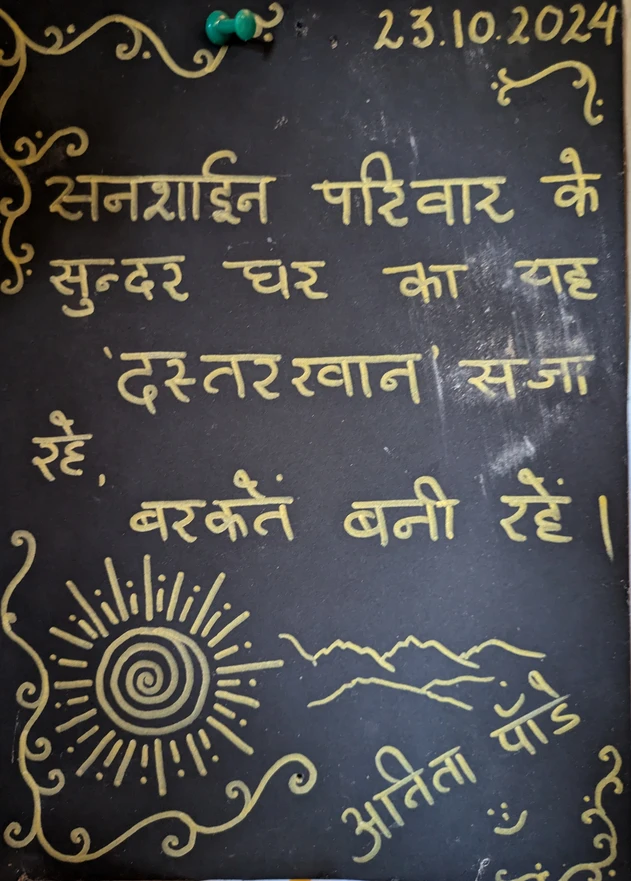 23.10.2024
सनशाईन परिवार के
सुन्दर घर का यह
'दस्तरखान' सजा
रहे,
बरकतें बनी रहें।
अनिता पाँडे